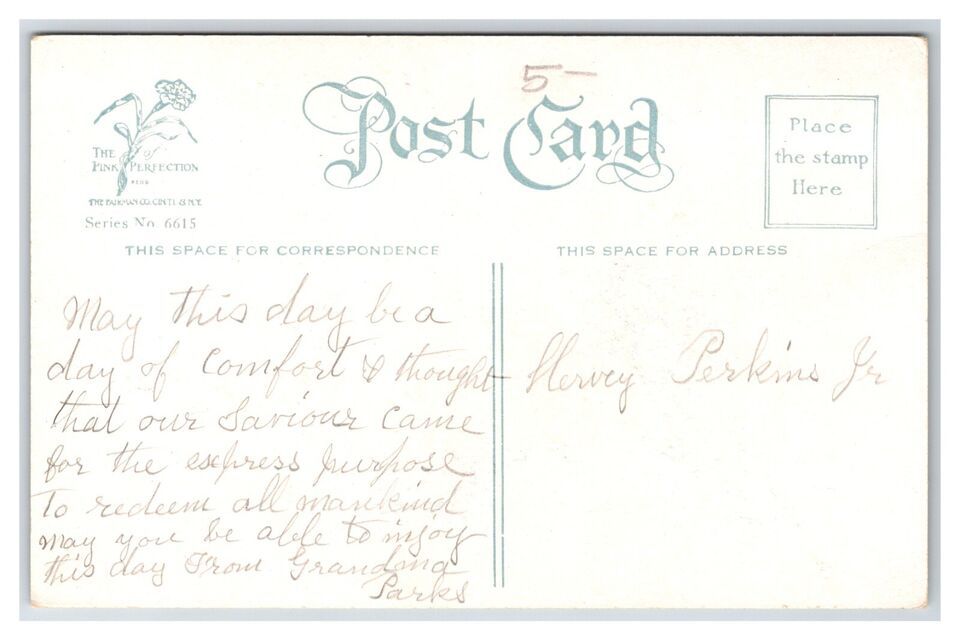 5-
Post Card
THE PINK of PERFECTION
THE FAIRMAN CO. CIN'TI & N.Y.
Series No. 6615
Place
the stamp
Here
THIS SPACE FOR CORRESPONDENCE
THIS SPACE FOR ADDRESS
May this day be a
day of comfort & thought
that our Saviour came
for the express purpose
to redeem all mankind
may you be able to injoy
this day From Grandma
Parks
Hervey Perkins Jr